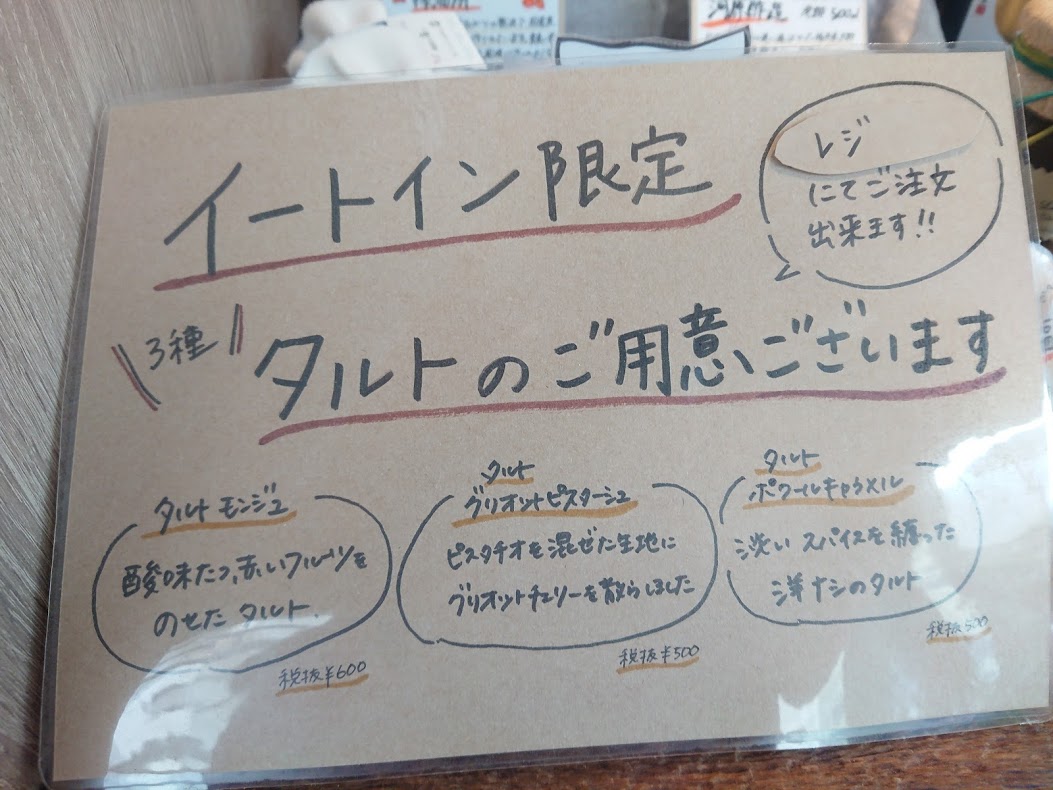 イートイン限定
レジ
にてご注文
出来ます!!
3種
タルトのご用意ございます
タルト モンジュ
酸味たつ、赤いフルーツを
のせた タルト.
税抜¥600
タルト
グリオットピスターシュ
ピスタチオを混ぜた生地に
グリオットチェリーを散らしました
税抜¥500
タルト
ポワールキャラメル
淡い スパイスを纏った
洋ナシのタルト
税抜500